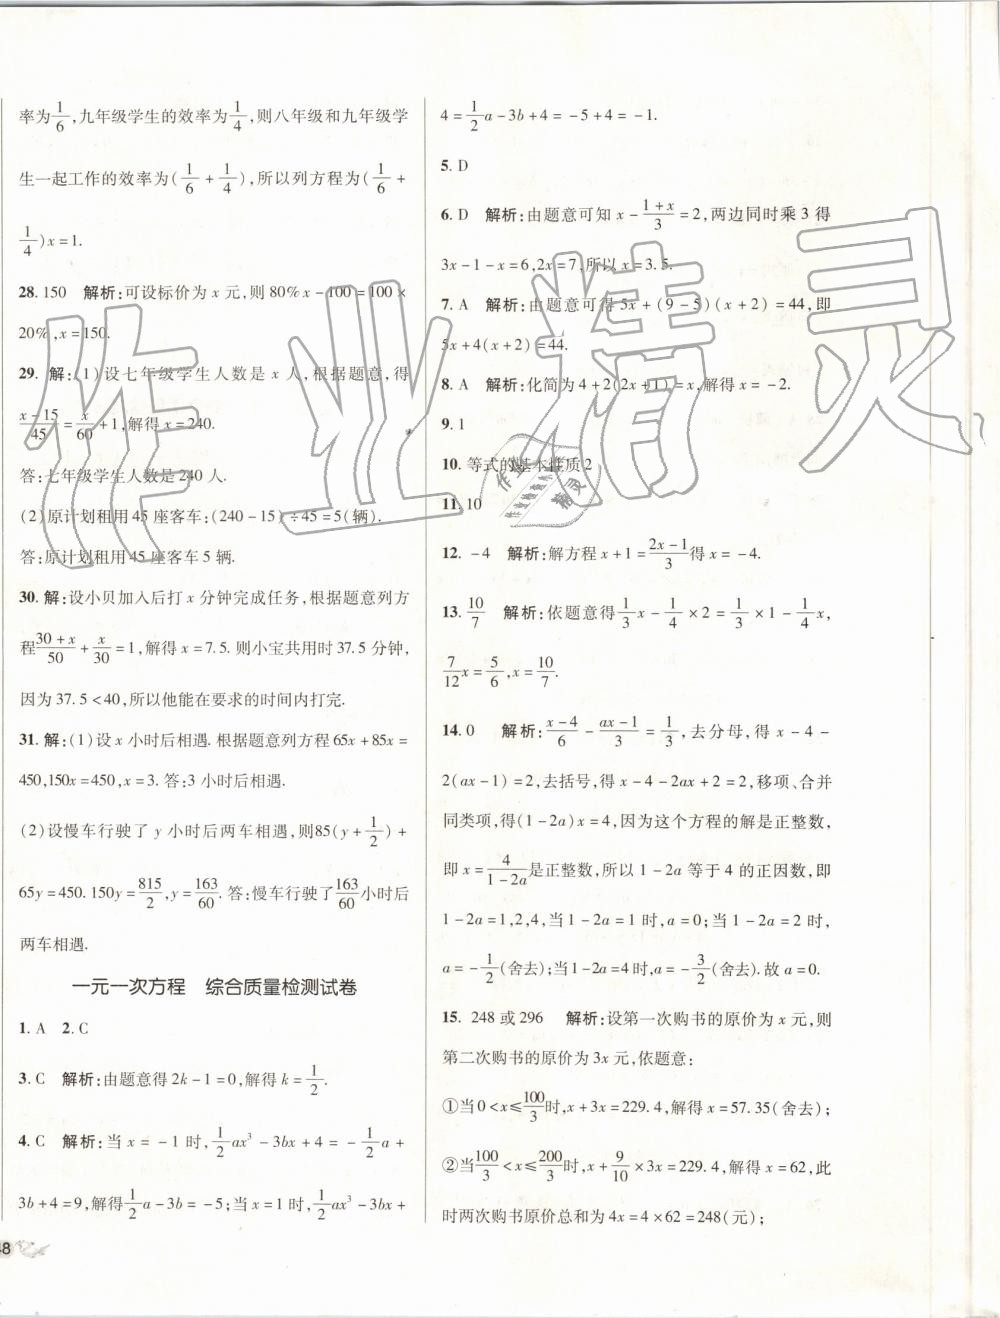 率为1/6,九年级学生的效率为1/4,则八年级和九年级学
生一起工作的效率为(1/6+1/4),所以列方程为(1/6+
1/4)x=1.
28. 150 解析:可设标价为 x 元,则 80%x-100=100×
20%,x=150.
29. 解:(1)设七年级学生人数是 x 人,根据题意,得
(x-15)/45=x/60+1,解得 x=240.
答:七年级学生人数是 240 人.
(2)原计划租用 45 座客车:(240-15)÷45=5(辆).
答:原计划租用 45 座客车 5 辆.
30. 解:设小贝加入后打 x 分钟完成任务,根据题意列方
程(30+x)/50+x/30=1,解得 x=7.5. 则小宝共用时 37.5 分钟,
因为 37.5<40,所以他能在要求的时间内打完.
31. 解:(1)设 x 小时后相遇. 根据题意列方程 65x+85x=
450,150x=450,x=3. 答:3 小时后相遇.
(2)设慢车行驶了 y 小时后两车相遇,则85(y+1/2)+
65y=450. 150y=815/2,y=163/60. 答:慢车行驶了163/60小时后
两车相遇.
一元一次方程 综合质量检测试卷
1. A 2. C
3. C 解析:由题意得 2k-1=0,解得 k=1/2.
4. C 解析:当 x=-1 时,1/2ax³-3bx+4=-1/2a+
3b+4=9,解得1/2a-3b=-5;当 x=1 时,1/2ax³-3bx+
48
4=1/2a-3b+4=-5+4=-1.
5. D
6. D 解析:由题意可知 x-(1+x)/3=2,两边同时乘 3 得
3x-1-x=6,2x=7,所以 x=3.5.
7. A 解析:由题意可得 5x+(9-5)(x+2)=44,即
5x+4(x+2)=44.
8. A 解析:化简为 4+2(2x+1)=x,解得 x=-2.
9. 1
10. 等式的基本性质 2
11. 10
12. -4 解析:解方程 x+1=(2x-1)/3得 x=-4.
13. 10/7 解析:依题意得1/3x-1/4×2=1/3×1-1/4x,
7/12x=5/6,x=10/7.
14. 0 解析:(x-4)/6-(ax-1)/3=1/3,去分母,得 x-4-
2(ax-1)=2,去括号,得 x-4-2ax+2=2,移项、合并
同类项,得(1-2a)x=4,因为这个方程的解是正整数,
即 x=4/(1-2a)是正整数,所以 1-2a 等于 4 的正因数,即
1-2a=1,2,4,当 1-2a=1 时,a=0;当 1-2a=2 时,
a=-1/2(舍去);当 1-2a=4 时,a=-3/2(舍去).故 a=0.
15. 248 或 296 解析:设第一次购书的原价为 x 元,则
第二次购书的原价为 3x 元,依题意:
①当 0<x≤100/3时,x+3x=229.4,解得 x=57.35(舍去);
②当100/3<x≤200/3时,x+9/10×3x=229.4,解得 x=62,此
时两次购书原价总和为 4x=4×62=248(元);
作业精灵